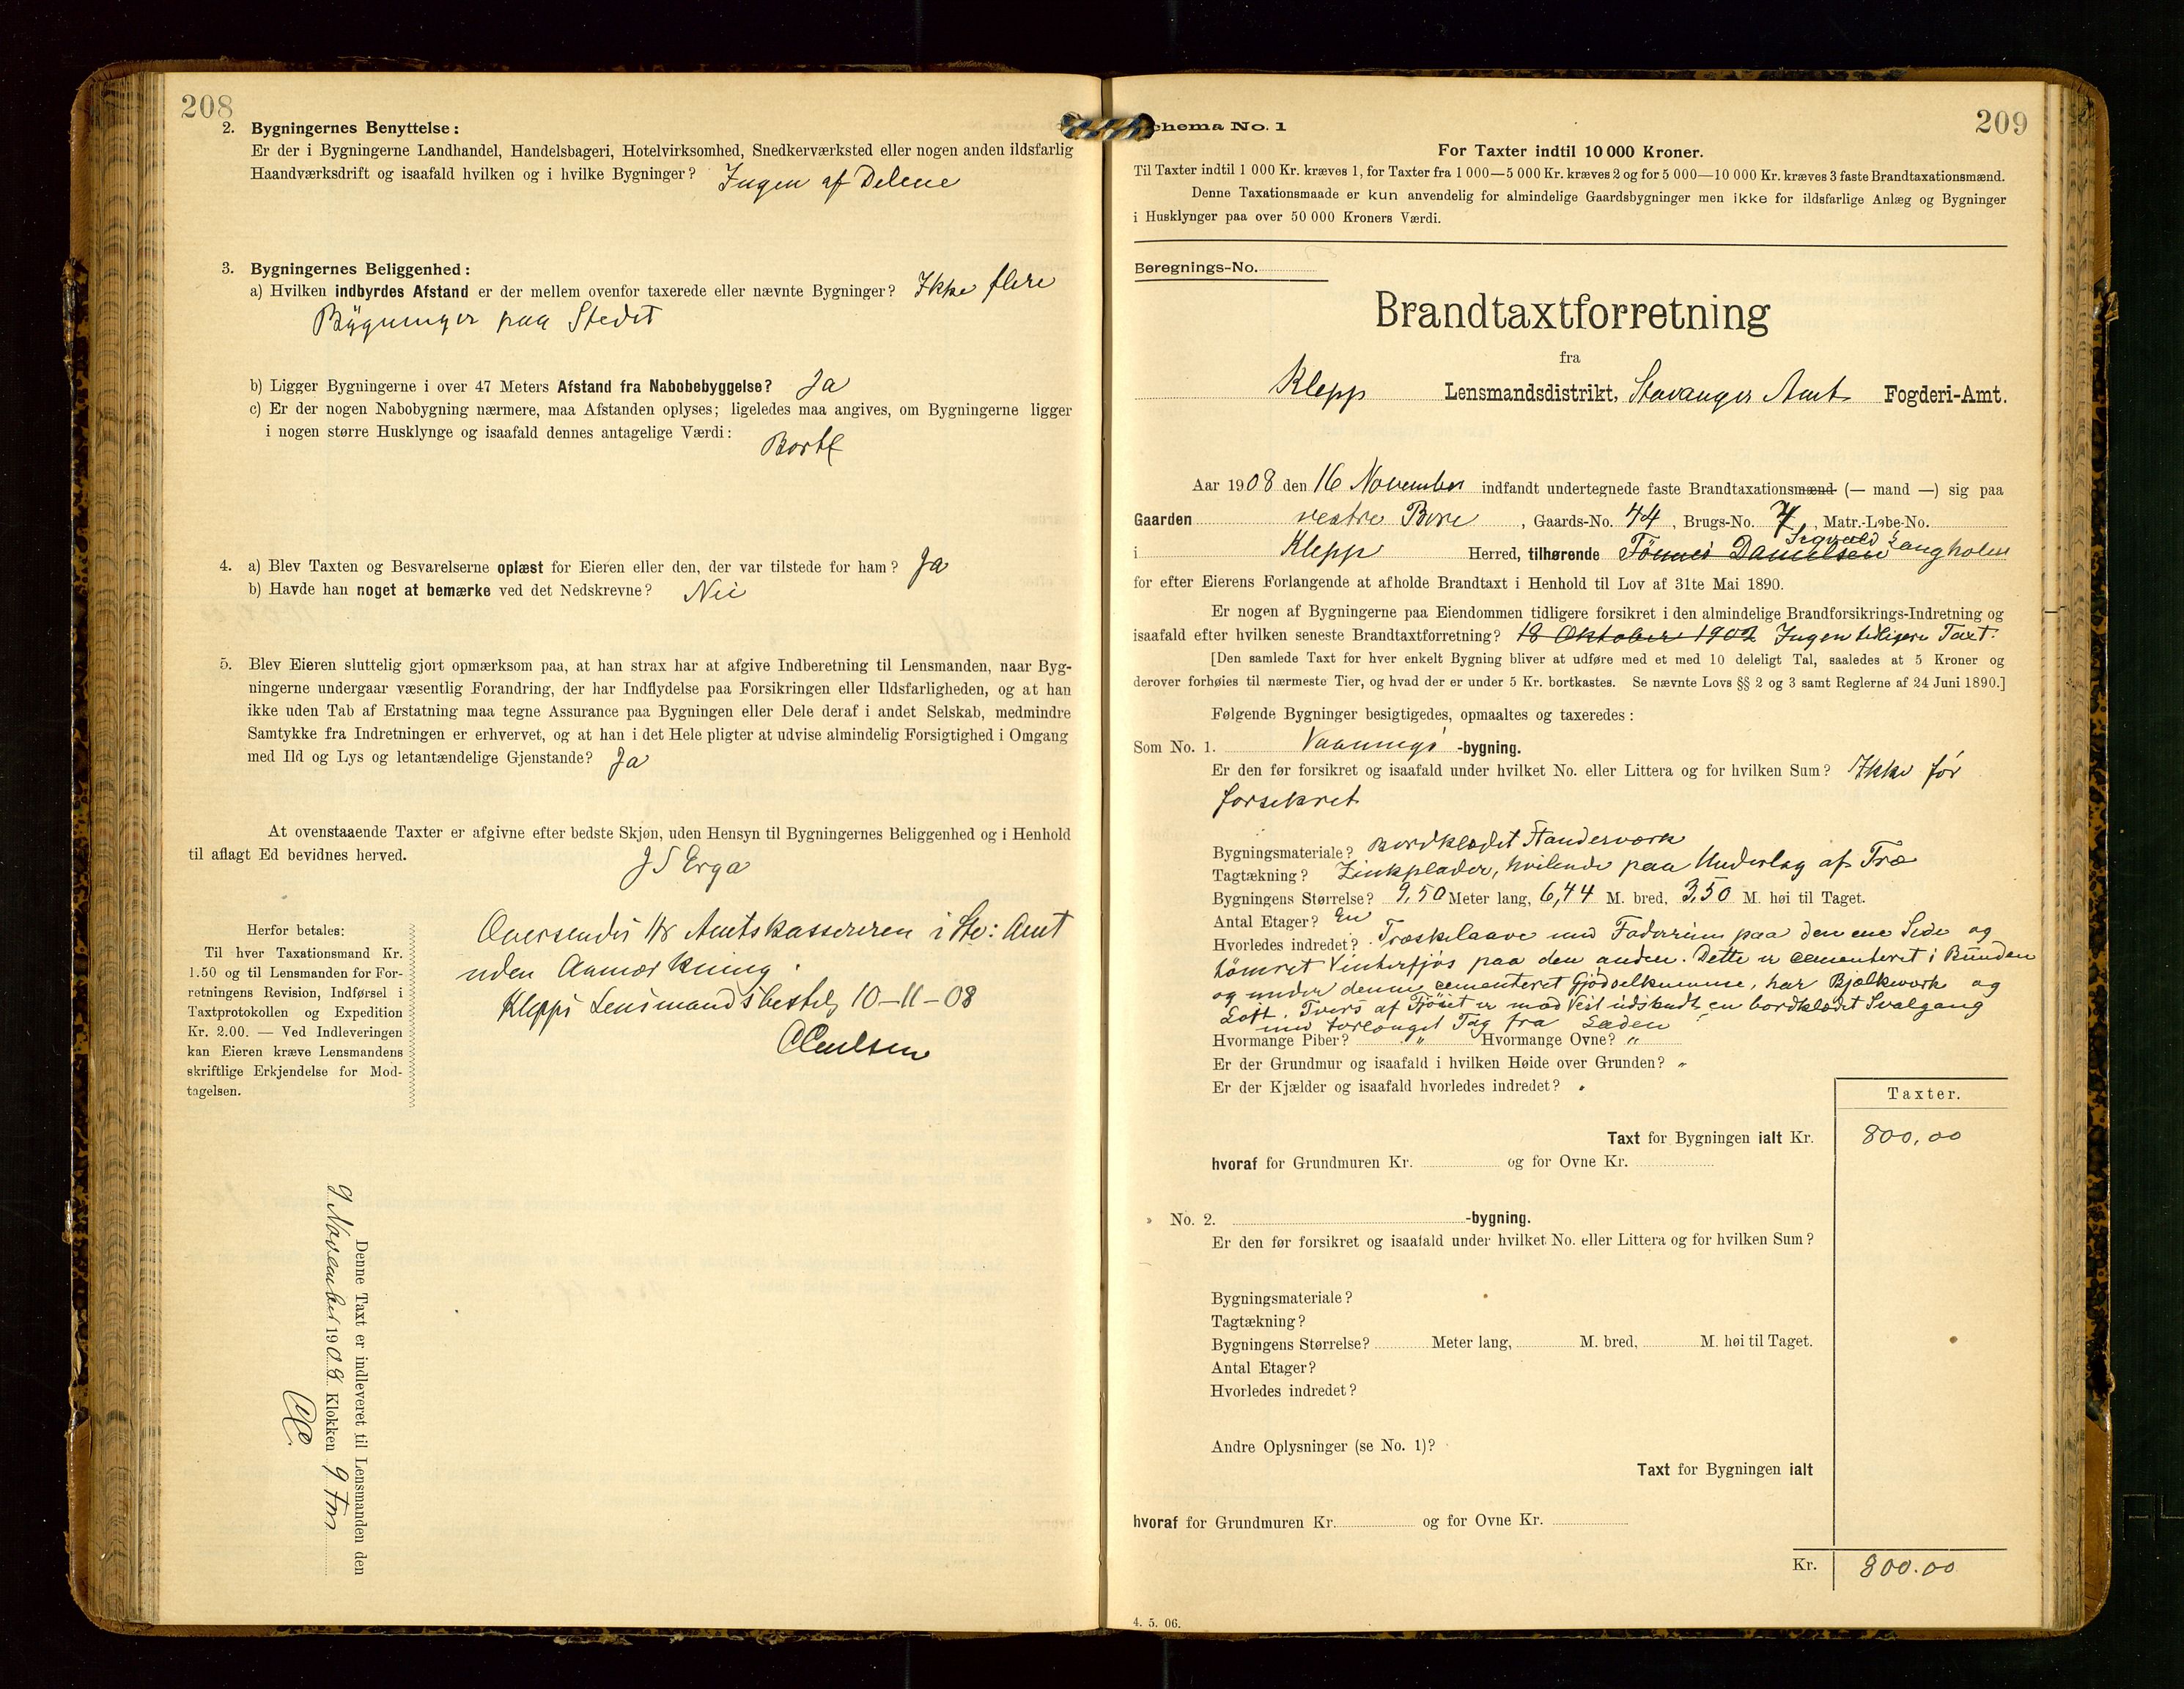 208
2. Bygningernes Benyttelse:
Er der i Bygningerne Landhandel, Handelsbageri, Hotelvirksomhed, Snedkerværksted eller nogen anden ildsfarlig
Haandværksdrift og isaafald hvilken og i hvilke Bygninger? Ingen af Delene
3. Bygningernes Beliggenhed:
a) Hvilken indbyrdes Afstand er der mellem ovenfor taxerede eller nævnte Bygninger? Ikke flere
Bygninger paa Stedet
b) Ligger Bygningerne i over 47 Meters Afstand fra Nabobebyggelse? Ja
c) Er der nogen Nabobygning nærmere, maa Afstanden oplyses; ligeledes maa angives, om Bygningerne ligger
i nogen større Husklynge og isaafald dennes antagelige Værdi: Bortf
4. a) Blev Taxten og Besvarelserne oplæst for Eieren eller den, der var tilstede for ham? Ja
b) Havde han noget at bemærke ved det Nedskrevne? Nei
5. Blev Eieren sluttelig gjort opmærksom paa, at han strax har at afgive Indberetning til Lensmanden, naar Byg-
ningerne undergaar væsentlig Forandring, der har Indflydelse paa Forsikringen eller Ildsfarligheden, og at han
ikke uden Tab af Erstatning maa tegne Assurance paa Bygningen eller Dele deraf i andet Selskab, medmindre
Samtykke fra Indretningen er erhvervet, og at han i det Hele pligter at udvise almindelig Forsigtighed i Omgang
med Ild og Lys og letantændelige Gjenstande? Ja
At ovenstaaende Taxter er afgivne efter bedste Skjøn, uden Hensyn til Bygningernes Beliggenhed og i Henhold
til aflagt Ed bevidnes herved.
J S Erga
Herfor betales:
Til hver Taxationsmand Kr.
1.50 og til Lensmanden for For-
retningens Revision, Indførsel i
Taxtprotokollen og Expedition
Kr. 2.00. — Ved Indleveringen
kan Eieren kræve Lensmandens
skriftlige Erkjendelse for Mod-
tagelsen.
Oversendes Hr Amtskassereren i Stv: Amt
uden Anmærkning.
Klepps Lensmandsbestil, 10-11-08
Denne Taxt er indleveret til Lensmanden den
9 November 1908 Klokken 9 Fm
209
Schema No. 1
For Taxter indtil 10 000 Kroner.
Til Taxter indtil 1 000 Kr. kræves 1, for Taxter fra 1 000—5 000 Kr. kræves 2 og for 5 000—10 000 Kr. kræves 3 faste Brandtaxationsmænd.
Denne Taxationsmaade er kun anvendelig for almindelige Gaardsbygninger men ikke for ildsfarlige Anlæg og Bygninger
i Husklynger paa over 50 000 Kroners Værdi.
Beregnings-No.
Brandtaxtforretning
fra
Klepp Lensmandsdistrikt, Stavanger Amt Fogderi-Amt.
Aar 1908 den 16 November indfandt undertegnede faste Brandtaxationsmænd (— mand —) sig paa
Gaarden vestre Bore, Gaards-No. 44, Brugs-No. 7, Matr.-Løbe-No.
i Klepp Herred, tilhørende Tönnes Danielsen Sigvald Langholm
for efter Eierens Forlangende at afholde Brandtaxt i Henhold til Lov af 31te Mai 1890.
Er nogen af Bygningerne paa Eiendommen tidligere forsikret i den almindelige Brandforsikrings-Indretning og
isaafald efter hvilken seneste Brandtaxtforretning? 18 Oktober 1902 Ingen tidligere Taxt.
[Den samlede Taxt for hver enkelt Bygning bliver at udføre med et med 10 deleligt Tal, saaledes at 5 Kroner og
derover forhøies til nærmeste Tier, og hvad der er under 5 Kr. bortkastes. Se nævnte Lovs §§ 2 og 3 samt Reglerne af 24 Juni 1890.]
Følgende Bygninger besigtigedes, opmaaltes og taxeredes:
Som No. 1. Vaanings-bygning.
Er den før forsikret og isaafald under hvilket No. eller Littera og for hvilken Sum? Ikke før
forsekret
Bygningsmateriale? Bordklædet Standerværk
Tagtækning? Zinkplader, hvilende paa Underlag af Træ
Bygningens Størrelse? 9,50 Meter lang, 6,44 M. bred, 3,50 M. høi til Taget.
Antal Etager? En
Hvorledes indredet? Træskelaave med Foderrum paa den ene Side og
tömret Vinterfjös paa den anden. Dette er cementeret i Bunden
og under denne cementeret Gjödselkumme, har Bjelkeværk og
Loft. Tvers af Fjöset er mod Vest udskudt en bordklædet Svalgang
med forlænget Tag fra Laden
Hvormange Piber? " Hvormange Ovne? "
Er der Grundmur og isaafald i hvilken Høide over Grunden? "
Er der Kjælder og isaafald hvorledes indredet? "
Taxter.
Taxt for Bygningen ialt Kr. 800,00
hvoraf for Grundmuren Kr. og for Ovne Kr.
» No. 2. -bygning.
Er den før forsikret og isaafald under hvilket No. eller Littera og for hvilken Sum?
Bygningsmateriale?
Tagtækning?
Bygningens Størrelse? Meter lang, M. bred, M. høi til Taget.
Antal Etager?
Hvorledes indredet?
Andre Oplysninger (se No. 1)?
Taxt for Bygningen ialt
hvoraf for Grundmuren Kr. og for Ovne Kr.
Kr. 800.00
4. 5. 06.